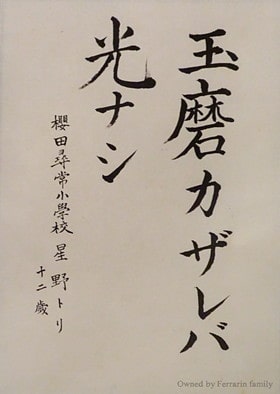 玉磨カザレバ
光ナシ
櫻田尋常小學校 星野トリ
十二歳
Owned by Ferrarin family